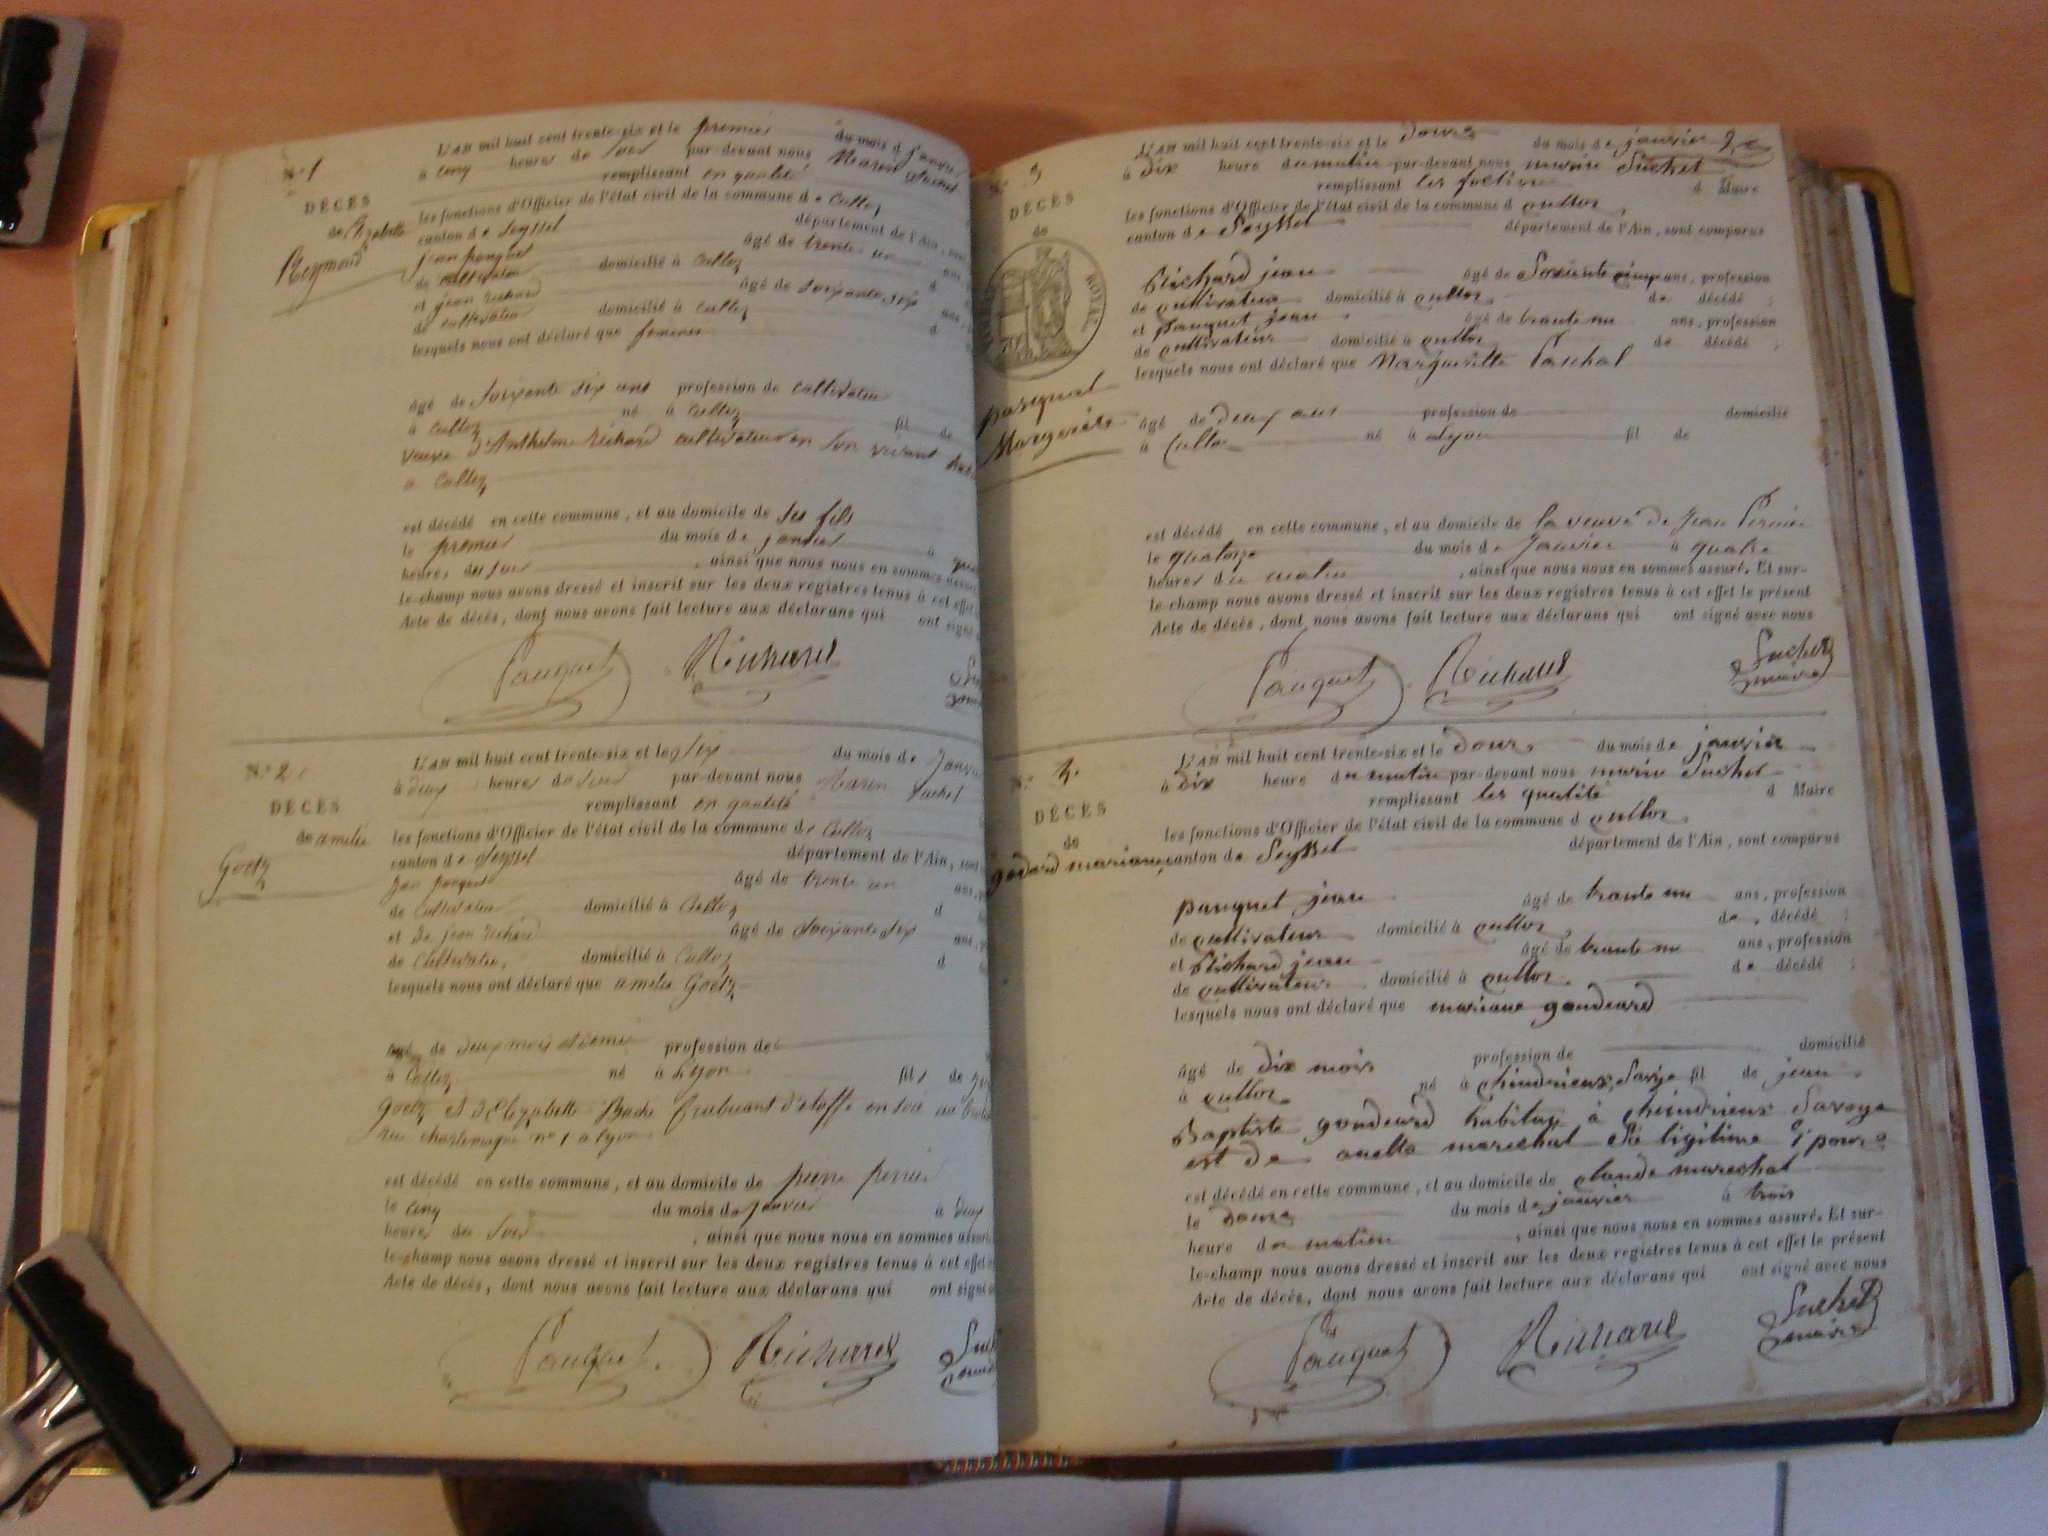 N.° 1
DÉCÈS
de Elizabette
Reymond
L'AN mil huit cent trente-six et le premier du mois d
à cinq heures de soir par-devant nous Marin Suchet
remplissant en qualité
les fonctions d'Officier de l'état civil de la commune de Culloz
canton de Seyssel département de l'Ain,
jean pauquet âgé de trente un ans,
de cultivateur domicilié à Culloz d
et jean richard âgé de soixante six ans,
de cultivateur domicilié à Culloz d
lesquels nous ont déclaré que
âgé de Soixante six ans profession de cultivateur
à Culloz né à Culloz fil de
veuve d'Anthelme Richard cultivateur en son vivant
a Culloz
est décédé en cette commune, et au domicile de ses fils
le premier du mois de janvier à
heures du soir, ainsi que nous nous en sommes
le-champ nous avons dressé et inscrit sur les deux registres tenus à cet effet
Acte de décès, dont nous avons fait lecture aux déclarans qui ont signé
Pauquet Richard
N.° 2
DÉCÈS
de amélie
Goetz
L'AN mil huit cent trente-six et le six du mois de Janv
à deux heures de soir par-devant nous Marin Suchet
remplissant en qualité
les fonctions d'Officier de l'état civil de la commune de Culloz
canton de Seyssel département de l'Ain, sont
Jean pauquet âgé de trente un ans,
de Cultivateur domicilié à Culloz d
et de jean richard âgé de Soixante Six ans,
de Cultivateur, domicilié à Culloz d
lesquels nous ont déclaré que amélie Goetz
âgé de deux mois et demi profession de
à Culloz né à Lyon fil de
Goetz et d'Elizabette fabricant d'étoffe en soie
rue charlemagne n° 1 a lyon
est décédé en cette commune, et au domicile de pierre perrier
le cinq du mois de janvier à deux
heures du soir, ainsi que nous nous en sommes assuré
le-champ nous avons dressé et inscrit sur les deux registres tenus à cet effet
Acte de décès, dont nous avons fait lecture aux déclarans qui ont signé
Pauquet Richard
N.° 3
DÉCÈS
de
ROYAL
pasqual
Margueritte
L'AN mil huit cent trente-six et le douze du mois de janvier
à dix heure du matin par-devant nous marin Suchet
remplissant les foction d Maire
les fonctions d'Officier de l'état civil de la commune d culloz,
canton de Seyssel département de l'Ain, sont comparus
Richard jean âgé de Soixante cinq ans, profession
de cultivateur domicilié à culloz de décédé;
et pauquet jean âgé de trante un ans, profession
de cultivateur domicilié à culloz de décédé;
lesquels nous ont déclaré que Margueritte Paschal
âgé de deux ans profession de domicilié
à Culloz né à Lyon fil de
est décédé en cette commune, et au domicile de la veuve de Jean Perrier
le quatorze du mois de Janvier à quatre
heures du matin, ainsi que nous nous en sommes assuré. Et sur-
le-champ nous avons dressé et inscrit sur les deux registres tenus à cet effet le présent
Acte de décès, dont nous avons fait lecture aux déclarans qui ont signé avec nous
Pauquet Richard Suchet
maire
N.° 4.
DÉCÈS
de
godard mariane
L'AN mil huit cent trente-six et le douze du mois de janvier
à dix heure du matin par-devant nous marin Suchet
remplissant les qualité d Maire
les fonctions d'Officier de l'état civil de la commune d culloz
canton de Seyssel département de l'Ain, sont comparus
pauquet jean âgé de trante un ans, profession
de cultivateur domicilié à culloz de décédé;
et Richard jean âgé de trante un ans, profession
de cultivateur domicilié à culloz de décédé;
lesquels nous ont déclaré que mariane goudeard
âgé de dix mois profession de domicilié
à culloz né à chindrieux, Savoje fil de jean
Baptiste goudeard habitan à chindrieux Savoye
est de anette marechal Sa ligitime Epouse
est décédé en cette commune, et au domicile de claude mareschal
le douze du mois de janvier à trois
heure de matien, ainsi que nous nous en sommes assuré. Et sur-
le-champ nous avons dressé et inscrit sur les deux registres tenus à cet effet le présent
Acte de décès, dont nous avons fait lecture aux déclarans qui ont signé avec nous
Pauquet Richard Suchet
maire